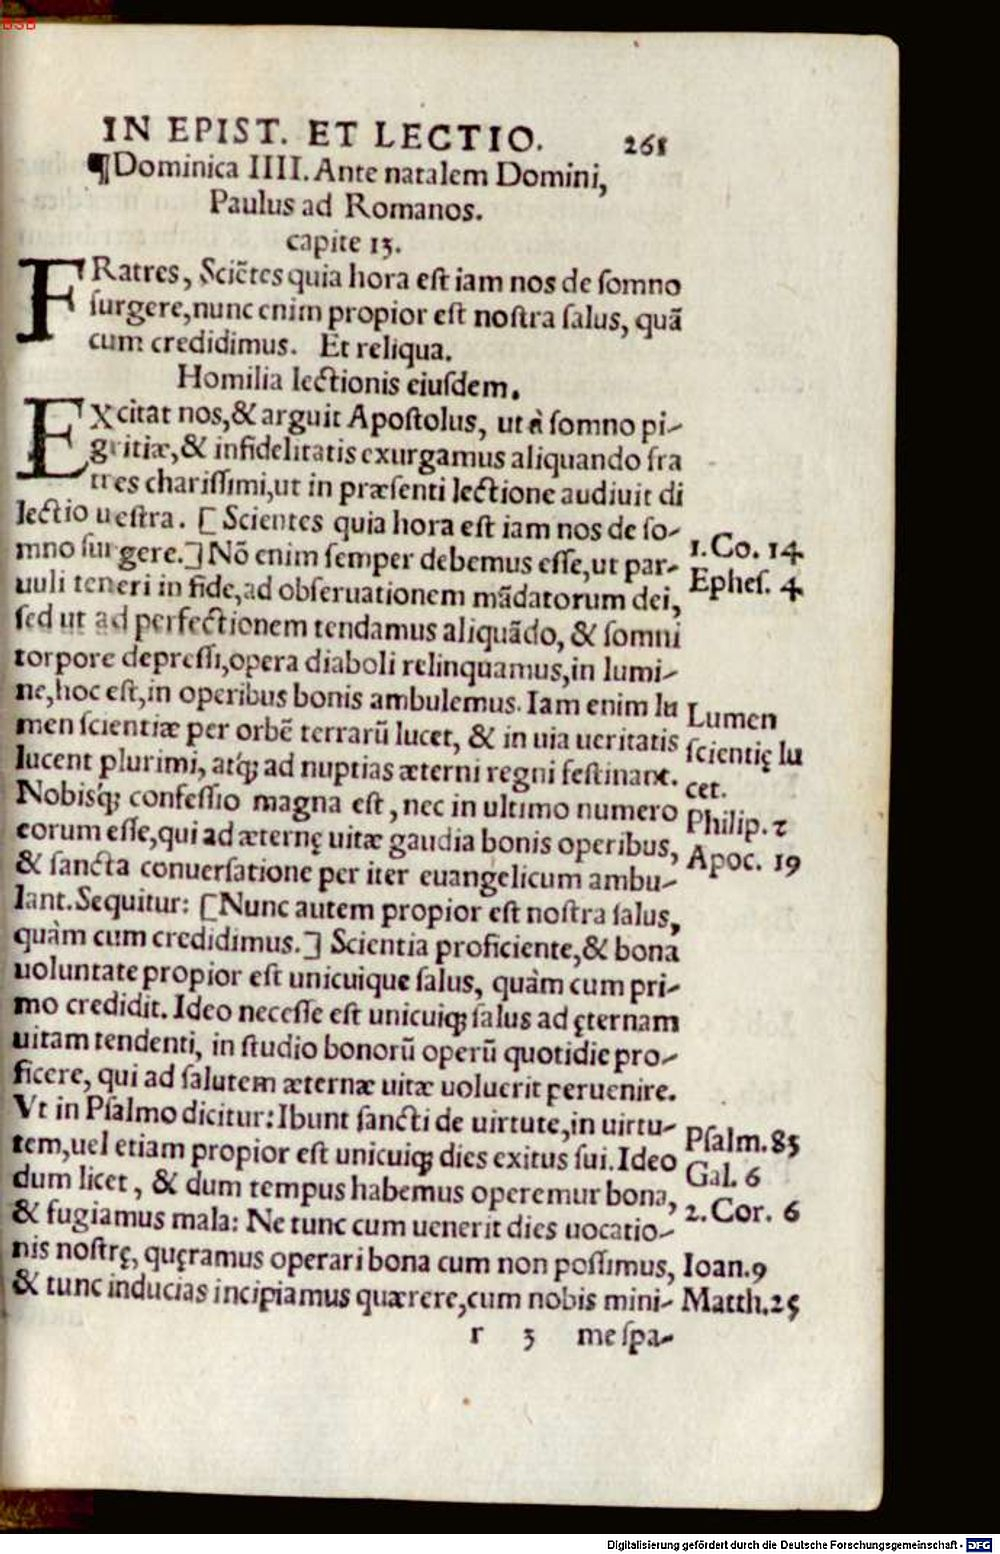 BSB
IN EPIST. ET LECTIO. 261
¶Dominica IIII. Ante natalem Domini,
Paulus ad Romanos.
capite 13.
FRatres, Sciẽtes quia hora eſt iam nos de ſomno
ſurgere,nunc enim propior eſt noſtra ſalus, quã
cum credidimus. Et reliqua.
Homilia lectionis eiuſdem.
EXcitat nos,& arguit Apoſtolus, ut à ſomno pi-
gritiæ,& infidelitatis exurgamus aliquando fra
tres chariſſimi,ut in præſenti lectione audiuit di
lectio ueſtra. [Scientes quia hora eſt iam nos de ſo-
mno ſurgere.] Nõ enim ſemper debemus eſſe,ut par-
uuli teneri in fide,ad obſeruationem mãdatorum dei,
ſed ut ad perfectionem tendamus aliquãdo, & ſomni
torpore depreſſi,opera diaboli relinquamus,in lumi-
ne,hoc eſt,in operibus bonis ambulemus. Iam enim lu
men ſcientiæ per orbẽ terrarũ lucet, & in uia ueritatis
lucent plurimi, atq́; ad nuptias æterni regni feſtinant.
Nobisq́; confeſſio magna eſt, nec in ultimo numero
eorum eſſe,qui ad æternę uitæ gaudia bonis operibus,
& ſancta conuerſatione per iter euangelicum ambu-
lant. Sequitur: [Nunc autem propior eſt noſtra ſalus,
quàm cum credidimus.] Scientia proficiente,& bona
uoluntate propior eſt unicuique ſalus, quàm cum pri-
mo credidit. Ideo neceſſe eſt unicuiq; ſalus ad ęternam
uitam tendenti, in ſtudio bonorũ operũ quotidie pro-
ficere, qui ad ſalutem æternæ uitæ uoluerit peruenire.
Vt in Pſalmo dicitur: Ibunt ſancti de uirtute,in uirtu-
tem,uel etiam propior eſt unicuiq; dies exitus ſui. Ideo
dum licet, & dum tempus habemus operemur bona,
& fugiamus mala: Ne tunc cum uenerit dies uocatio-
nis noſtrę, quęramus operari bona cum non poſſimus,
& tunc inducias incipiamus quærere,cum nobis mini-
r 3 me ſpa-
1. Co. 14
Epheſ. 4
Lumen
ſcientię lu
cet.
Philip. 2
Apoc. 19
Pſalm. 85
Gal. 6
2. Cor. 6
Ioan. 9
Matth. 25
Digitalisierung gefördert durch die Deutsche Forschungsgemeinschaft - DFG